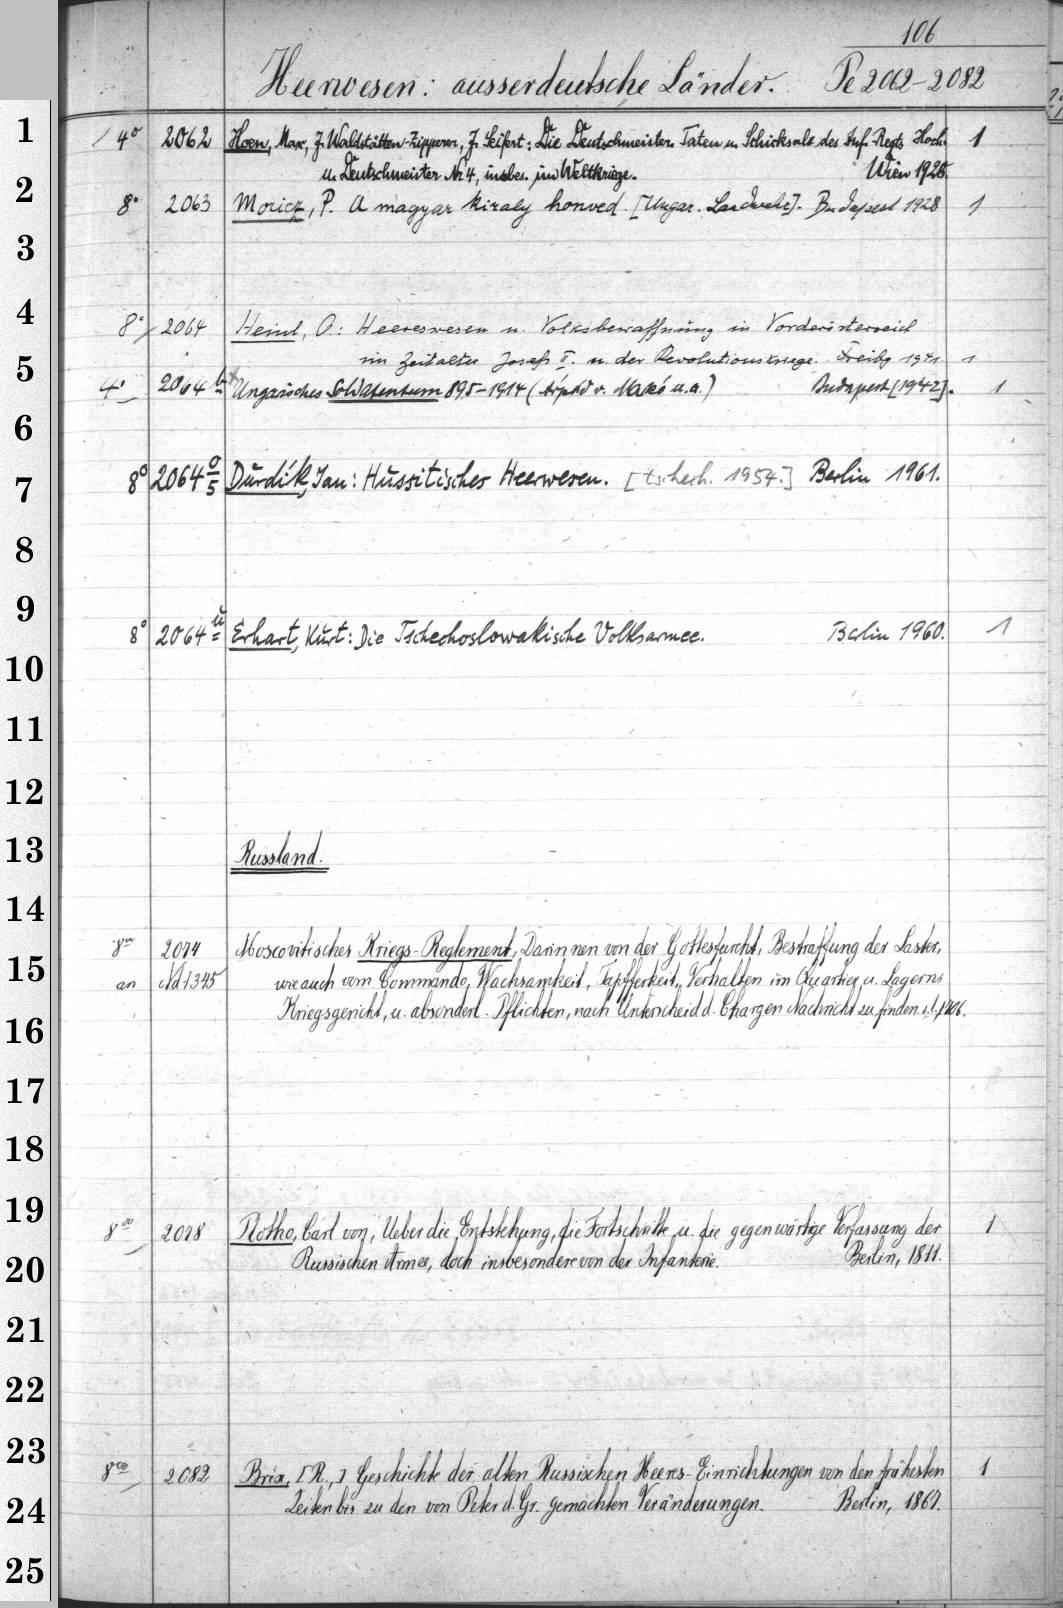 106
Heerwesen: ausserdeutsche Länder. Pe 2062-2082
4° 2062 Hoen, Max, J. Waldstätten-Zipperer, J. Seifert: Die Deutschmeister. Taten u. Schicksale des Inf. Regts Hoch- 1
u. Deutschmeister Nr 4, insbes. im Weltkriege. Wien 1928.
8° 2063 Moricz, P. A magyar kiraly honved. [Ungar. Landwehr]. Budapest 1928 1
8° 2064 Heinl, O.: Heereswesen u. Volksbewaffnung in Vorderösterreich
im Zeitalter Josefs II. u. der Revolutionskriege. Freibg 1941. 1
4° 2064 b Ungarisches Soldatentum 895-1914 (Árpád v. Makó u.a.) Budapest [1942]. 1
8° 2064 Durdík, Jan: Hussitisches Heerwesen. [tschech. 1954.] Berlin 1961.
8° 2064 u Erhart, Kurt: Die Tschechoslowakische Volksarmee. Berlin 1960. 1
Russland.
8vo 2074 Moscovitisches Kriegs-Reglement, Darinnen von der Gottesfurcht, Bestraffung der Laster,
an Nd 1345 wie auch vom Commando, Wachsamkeit, Tapfferkeit, Verhalten im Quartier u. Lagerns
Kriegsgericht, u. absonderl. Pflichten, nach Unterscheid d. Chargen Nachricht zu finden s.l. 1706.
8vo 2078 Plotho, Carl von, Ueber die Entstehung, die Fortschritte u. die gegenwärtige Verfassung der 1
Russischen Armee, doch insbesondere von der Infanterie. Berlin, 1811.
8vo 2082 Brix, [R.,] Geschichte der alten Russischen Heeres-Einrichtungen von den frühesten 1
Zeiten bis zu den von Peter d. Gr. gemachten Veränderungen. Berlin, 1867.
1
2
3
4
5
6
7
8
9
10
11
12
13
14
15
16
17
18
19
20
21
22
23
24
25